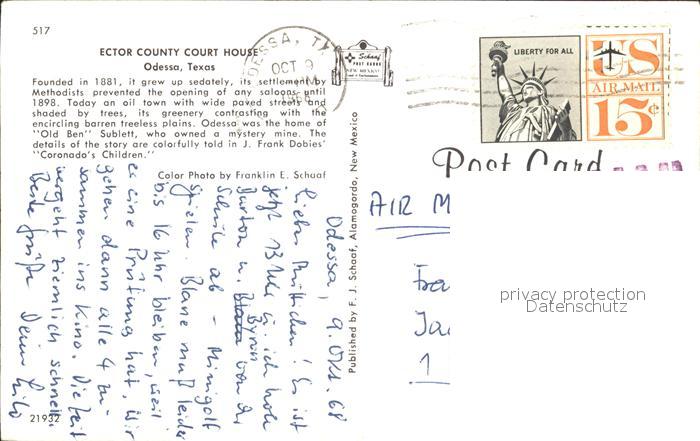 517
ECTOR COUNTY COURT HOUSE
Odessa, Texas
Founded in 1881, it grew up sedately, its settlement by
Methodists prevented the opening of any saloons until
1898. Today an oil town with wide paved streets and
shaded by trees, its greenery contrasting with the
encircling barren treeless plains. Odessa was the home of
"Old Ben" Sublett, who owned a mystery mine. The
details of the story are colorfully told in J. Frank Dobies'
"Coronado's Children."
Color Photo by Franklin E. Schaaf
ODESSA, TX
OCT 9
Schaaf
POST CARDS
NEW MEXICO
LIBERTY FOR ALL
US
AIR MAIL
15¢
Post Card
AIR M
1
privacy protection
Datenschutz
Published by F. J. Schaaf, Alamogordo, New Mexico
Odessa, 9. Okt. 68
Liebes Muttichen! Es ist
jetzt 13 Uhr u. ich hole
Burton u. Byron von der
Schule ab - Minigolf
spielen. Blane muß leider
bis 16 Uhr bleiben, weil
es eine Prüfung hat. Wir
gehen dann alle 4 zu-
sammen ins Kino. Die Zeit
vergeht ziemlich schnell.
Beste Grüße Deine
21932